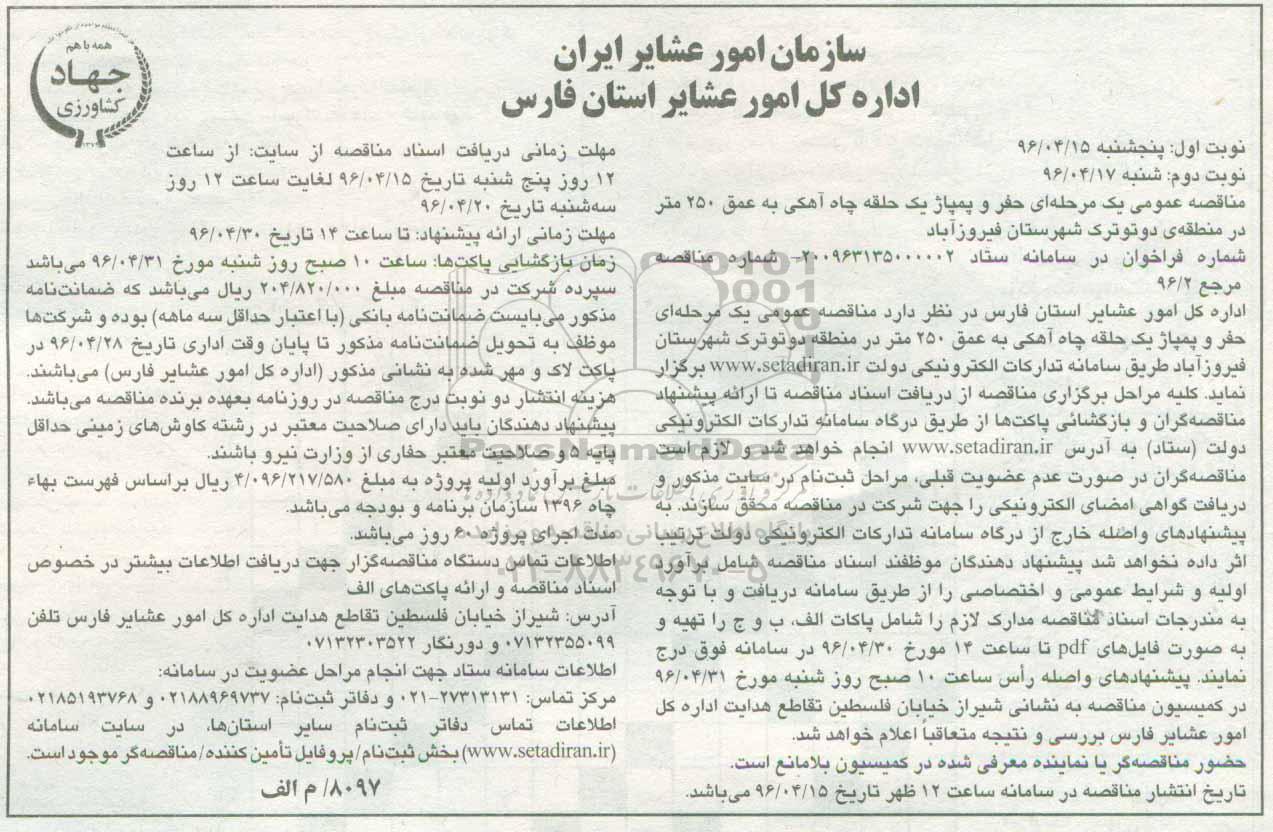 همه با هم
جهاد
کشاورزی
سازمان امور عشایر ایران
اداره کل امور عشایر استان فارس
نوبت اول: پنجشنبه ۹۶/۰۴/۱۵
نوبت دوم: شنبه ۹۶/۰۴/۱۷
مناقصه عمومی یک مرحله‌ای حفر و پمپاژ یک حلقه چاه آهکی به عمق ۲۵۰ متر
در منطقه‌ی دوتوترک شهرستان فیروزآباد
شماره فراخوان در سامانه ستاد ۲۰۰۹۶۳۱۳۵۰۰۰۰۰۲- شماره مناقصه
مرجع ۹۶/۲
اداره کل امور عشایر استان فارس در نظر دارد مناقصه عمومی یک مرحله‌ای
حفر و پمپاژ یک حلقه چاه آهکی به عمق ۲۵۰ متر در منطقه دوتوترک شهرستان
فیروزآباد طریق سامانه تدارکات الکترونیکی دولت www.setadiran.ir برگزار
نماید. کلیه مراحل برگزاری مناقصه از دریافت اسناد مناقصه تا ارائه پیشنهاد
مناقصه‌گران و بازگشائی پاکت‌ها از طریق درگاه سامانه تدارکات الکترونیکی
دولت (ستاد) به آدرس www.setadiran.ir انجام خواهد شد و لازم است
مناقصه‌گران در صورت عدم عضویت قبلی، مراحل ثبت‌نام در سایت مذکور و
دریافت گواهی امضای الکترونیکی را جهت شرکت در مناقصه محقق سازند. به
پیشنهادهای واصله خارج از درگاه سامانه تدارکات الکترونیکی دولت ترتیب
اثر داده نخواهد شد پیشنهاد دهندگان موظفند اسناد مناقصه شامل برآورد
اولیه و شرایط عمومی و اختصاصی را از طریق سامانه دریافت و با توجه
به مندرجات اسناد مناقصه مدارک لازم را شامل پاکات الف، ب و ج را تهیه و
به صورت فایل‌های pdf تا ساعت ۱۴ مورخ ۹۶/۰۴/۳۰ در سامانه فوق درج
نمایند. پیشنهادهای واصله رأس ساعت ۱۰ صبح روز شنبه مورخ ۹۶/۰۴/۳۱
در کمیسیون مناقصه به نشانی شیراز خیابان فلسطین تقاطع هدایت اداره کل
امور عشایر فارس بررسی و نتیجه متعاقبا اعلام خواهد شد.
حضور مناقصه‌گر یا نماینده معرفی شده در کمیسیون بلامانع است.
تاریخ انتشار مناقصه در سامانه ساعت ۱۲ ظهر تاریخ ۹۶/۰۴/۱۵ می‌باشد.
مهلت زمانی دریافت اسناد مناقصه از سایت: از ساعت
۱۲ روز پنج شنبه تاریخ ۹۶/۰۴/۱۵ لغایت ساعت ۱۲ روز
سه‌شنبه تاریخ ۹۶/۰۴/۲۰
مهلت زمانی ارائه پیشنهاد: تا ساعت ۱۴ تاریخ ۹۶/۰۴/۳۰
زمان بازگشایی پاکت‌ها: ساعت ۱۰ صبح روز شنبه مورخ ۹۶/۰۴/۳۱ می‌باشد
سپرده شرکت در مناقصه مبلغ ۲۰۴/۸۲۰/۰۰۰ ریال می‌باشد که ضمانت‌نامه
مذکور می‌بایست ضمانت‌نامه بانکی (با اعتبار حداقل سه ماهه) بوده و شرکت‌ها
موظف به تحویل ضمانت‌نامه مذکور تا پایان وقت اداری تاریخ ۹۶/۰۴/۲۸ در
پاکت لاک و مهر شده به نشانی مذکور (اداره کل امور عشایر فارس) می‌باشند.
هزینه انتشار دو نوبت درج مناقصه در روزنامه بعهده برنده مناقصه می‌باشد.
پیشنهاد دهندگان باید دارای صلاحیت معتبر در رشته کاوش‌های زمینی حداقل
پایه ۵ و صلاحیت معتبر حفاری از وزارت نیرو باشند.
مبلغ برآورد اولیه پروژه به مبلغ ۴/۰۹۶/۲۱۷/۵۸۰ ریال براساس فهرست بهاء
چاه ۱۳۹۶ سازمان برنامه و بودجه می‌باشد.
مدت اجرای پروژه ۶۰ روز می‌باشد.
اطلاعات تماس دستگاه مناقصه‌گزار جهت دریافت اطلاعات بیشتر در خصوص
اسناد مناقصه و ارائه پاکت‌های الف
آدرس: شیراز خیابان فلسطین تقاطع هدایت اداره کل امور عشایر فارس تلفن
۰۷۱۳۲۳۵۵۰۹۹ و دورنگار ۰۷۱۳۲۳۰۳۵۲۲
اطلاعات سامانه ستاد جهت انجام مراحل عضویت در سامانه:
مرکز تماس: ۲۷۳۱۳۱۳۱-۰۲۱ و دفاتر ثبت‌نام: ۰۲۱۸۸۹۶۹۷۳۷ و ۰۲۱۸۵۱۹۳۷۶۸
اطلاعات تماس دفاتر ثبت‌نام سایر استان‌ها، در سایت سامانه
(www.setadiran.ir) بخش ثبت‌نام/پروفایل تأمین کننده/مناقصه‌گر موجود است.
۸۰۹۷/ م الف
ParsNamadData
پایگاه اطلاع رسانی مناقصه و مزایده
۰۲۱-۸۸۳۴۹۶۷۰-۵